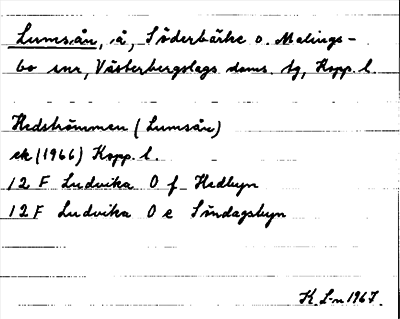 Lumsån, å, Söderbärke o. Malings-
bo snr, Västerbergslags doms. tg, Kopp. l.
Hedströmmen (Lumsån)
ek (1966) Kopp. l.
12 F Ludvika 0 f Hedbyn
12 F Ludvika 0 e Söndagsbyn
K. L-n 1967.